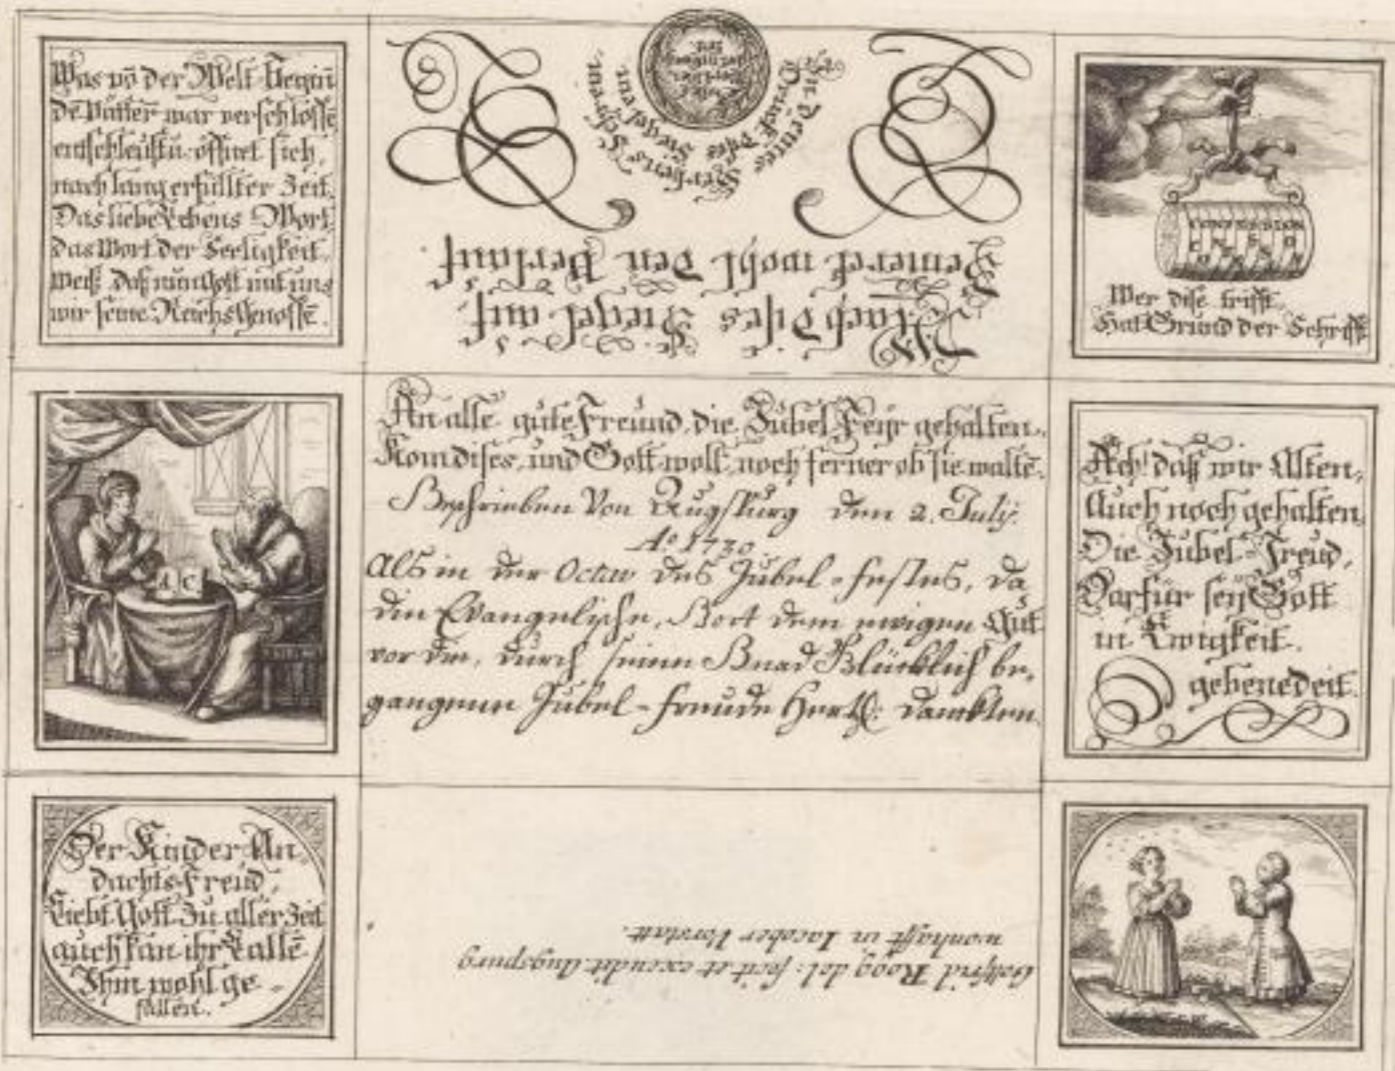 Was vō der Welt Begiñ
dē Vatter war verschlossē
entschleüst u: öffnet sich,
nach lang erfüllter Zeit.
Das liebe Lebens Wort,
das Wort der Seeligkeit.
weist daß nun Gott mit uns
wir seine Reichs Genossē.
Nach dises Siegel auf
Bemerck wohl den Verlauf.
CONFESSION
Wer dise trifft
Hat Grund der Schrifft
An alle gute Freund, die Jubel Feyr gehalten.
Kom dises, und Gott woll noch ferner ob sie waltē.
Beschrieben Von Augspurg den 2. Julij.
Aº 1730.
Als in der Octav des Jubel-Festes, da
die Evangelische, Gott dem ewigen Gut
vor die, durch seine Gnad Glücklich be-
gangene Jubel-Freude Hertzl: danckten.
A C
Ach! daß wir Alten,
Auch noch gehalten,
Die Jubel-Freud,
Darfür seÿ Gott
in Ewigkeit.
gebenedeit.
Der Kinder An-
dachts-Freud,
Liebt Gott zu aller Zeit
auch kan ihr Lallē
Ihm wohl ge-
fallen.
Gottfrid Rogg del: fecit et excudit Augspurg
wonhafft in Jacober Vorstatt.